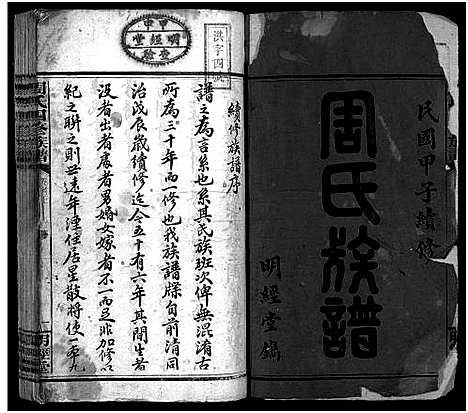 民國甲子續修
周氏族譜
明經堂鐫
洪字四號
甲申
明經堂
查驗
續修族譜序
譜之為言糸也糸其民族班次俾無混淆古
所為三十年而一修也我族譜牒自前清同
治戊辰歲續修迄今五十有六年其間生者
沒者出者處者男婚女嫁者不一而足非加修以
紀之聨之則世遠年湮住居星散將使一本九